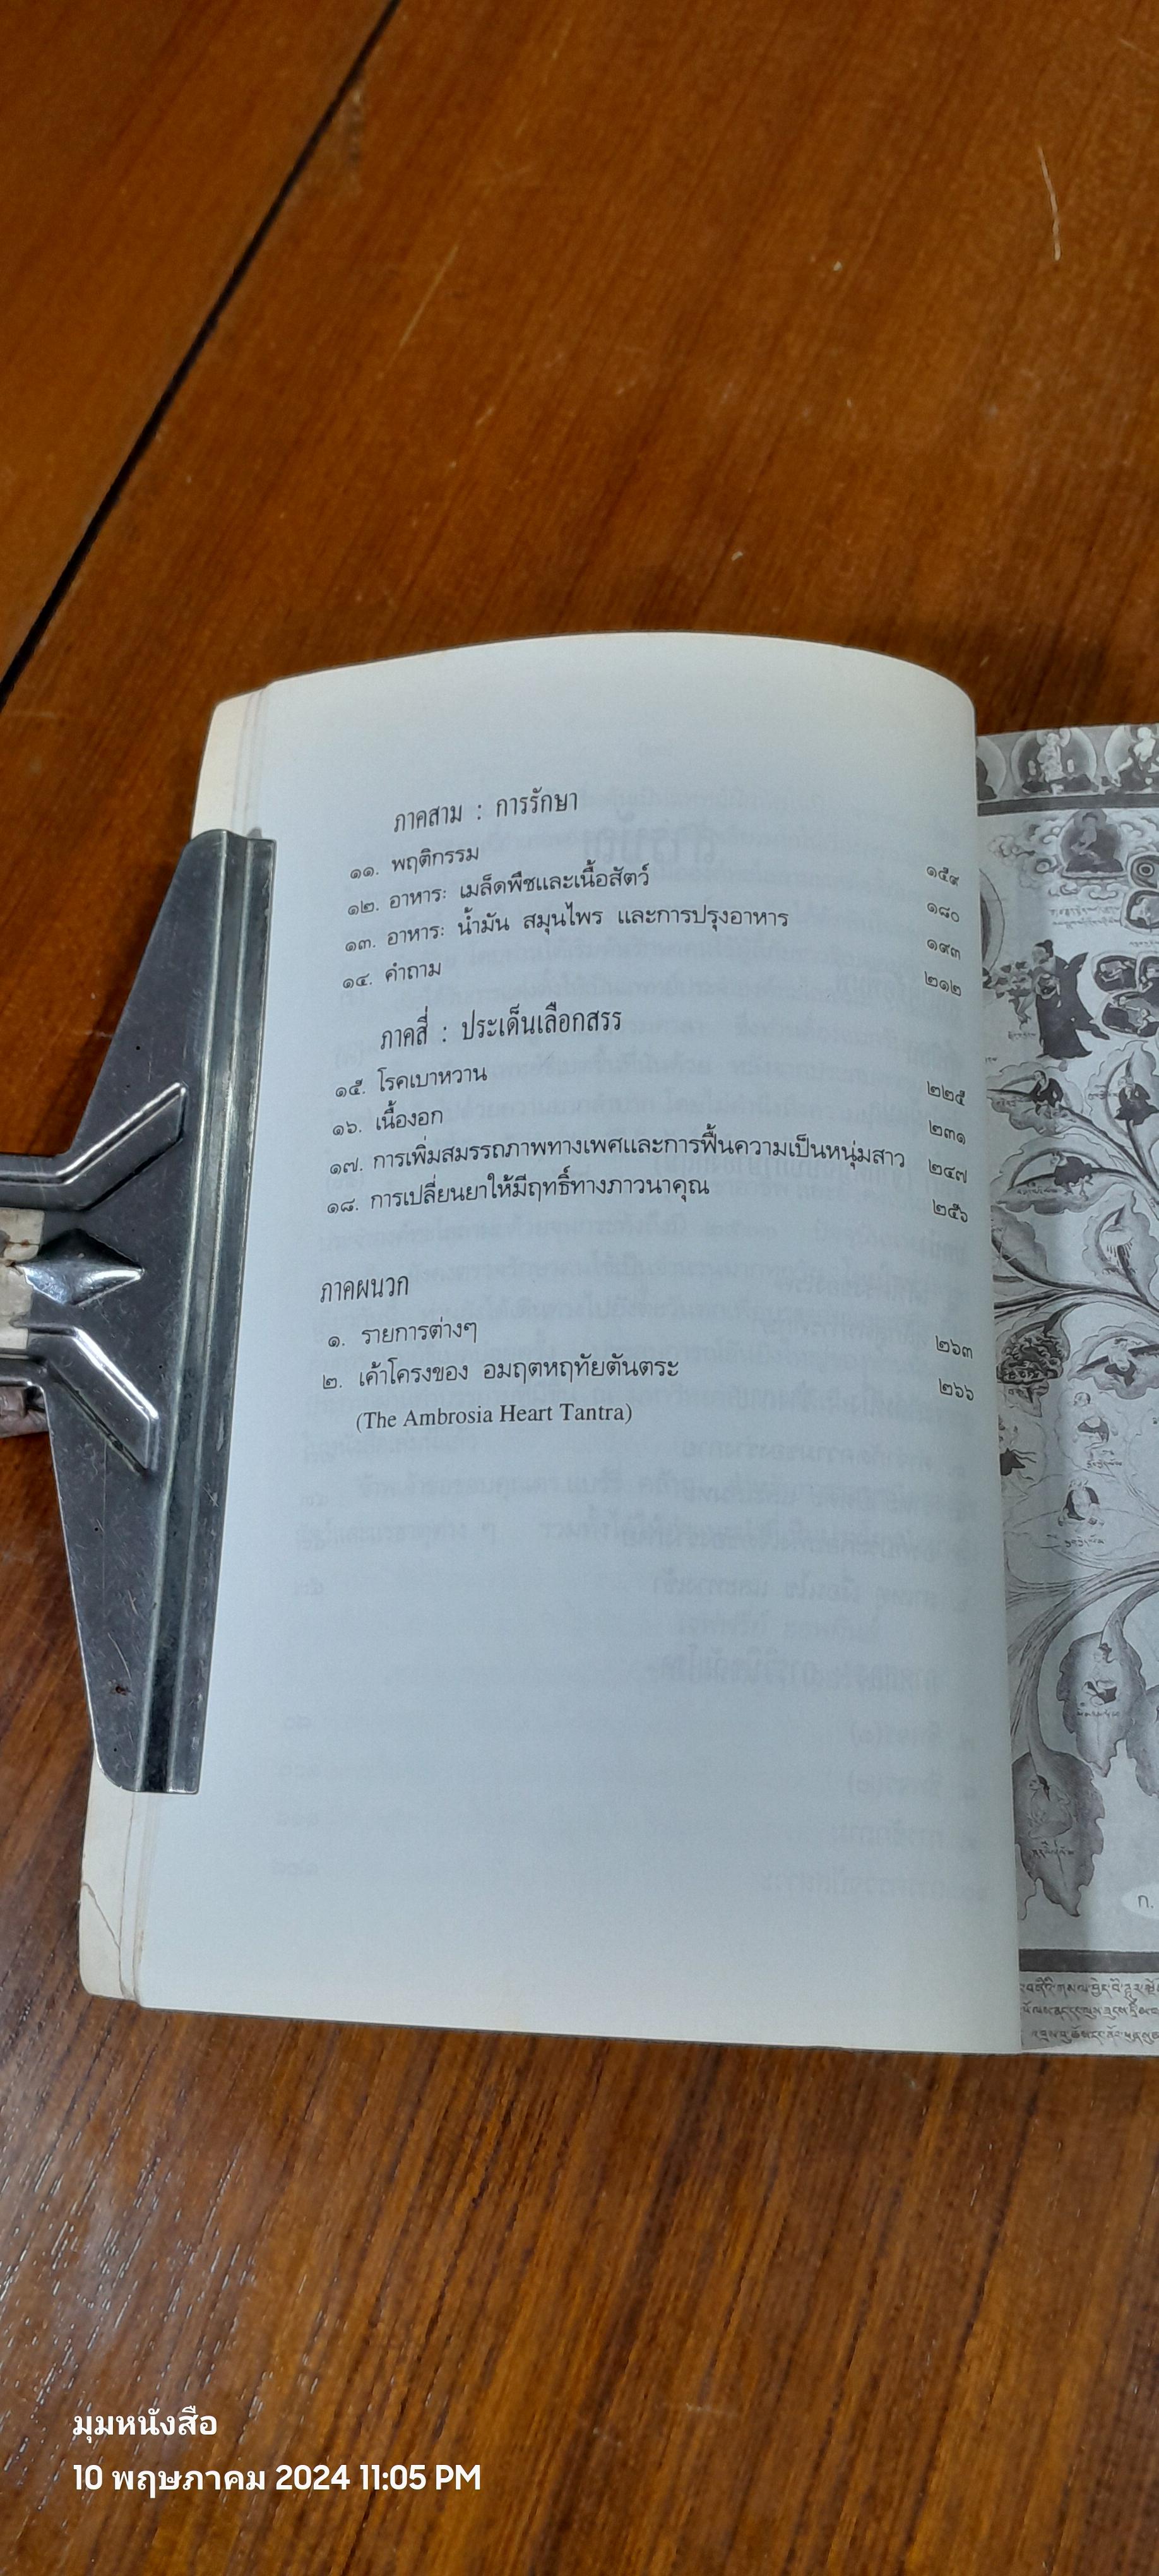 ภาคสาม : การรักษา
๑๑. พฤติกรรม ๑๕๙
๑๒. อาหาร: เมล็ดพืชและเนื้อสัตว์ ๑๘๐
๑๓. อาหาร: น้ำมัน สมุนไพร และการปรุงอาหาร ๑๙๓
๑๔. คำถาม ๒๑๒
ภาคสี่ : ประเด็นเลือกสรร
๑๕. โรคเบาหวาน ๒๒๕
๑๖. เนื้องอก ๒๓๑
๑๗. การเพิ่มสมรรถภาพทางเพศและการฟื้นความเป็นหนุ่มสาว ๒๔๗
๑๘. การเปลี่ยนยาให้มีฤทธิ์ทางภาวนาคุณ ๒๕๖
ภาคผนวก
๑. รายการต่างๆ ๒๖๓
๒. เค้าโครงของ อมฤตหฤทัยตันตระ ๒๖๖
(The Ambrosia Heart Tantra)
ก.
มุมหนังสือ
10 พฤษภาคม 2024 11:05 PM